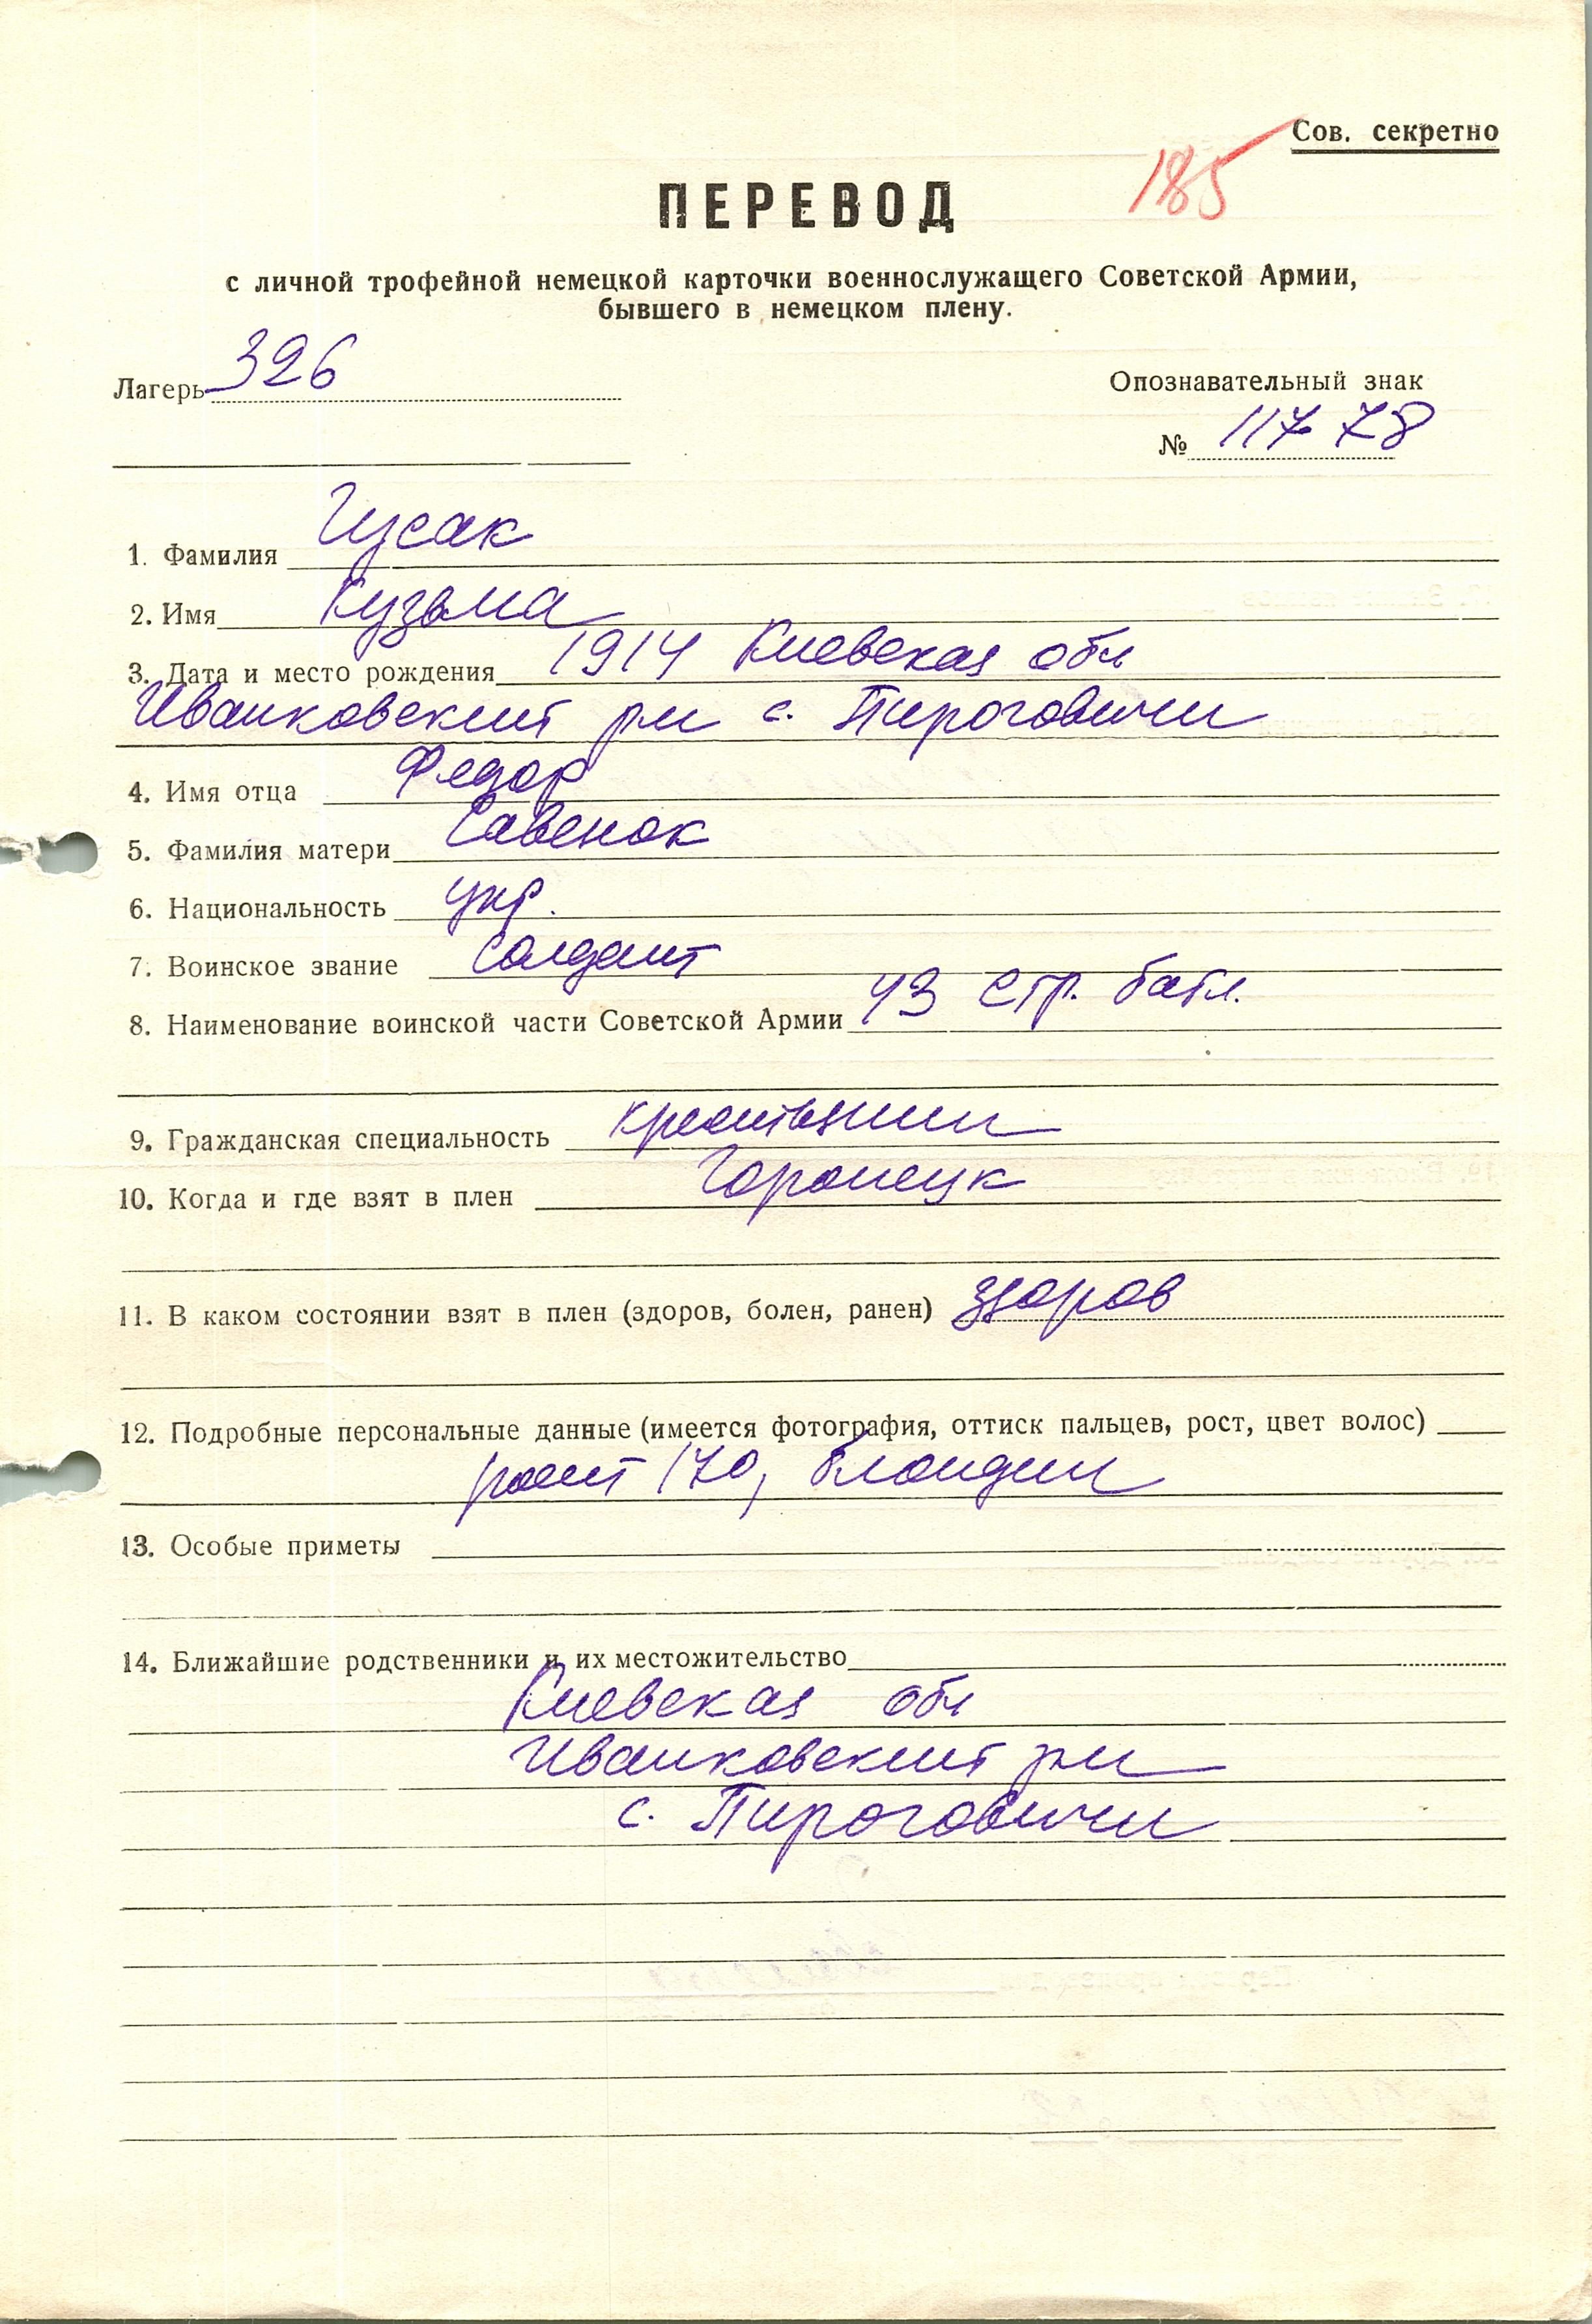 Сов. секретно
185
ПЕРЕВОД
с личной трофейной немецкой карточки военнослужащего Советской Армии,
бывшего в немецком плену.
Лагерь 326
Опознавательный знак
№ 11778
1. Фамилия Гусак
2. Имя Кузьма
3. Дата и место рождения 1914 Киевская обл
Иванковский рн с. Пироговичи
4. Имя отца Федор
5. Фамилия матери Савенок
6. Национальность укр.
7. Воинское звание солдат
8. Наименование воинской части Советской Армии 43 стр. батл.
9. Гражданская специальность крестьянин
10. Когда и где взят в плен
11. В каком состоянии взят в плен (здоров, болен, ранен) здоров
12. Подробные персональные данные (имеется фотография, оттиск пальцев, рост, цвет волос)
рост 170, блондин
13. Особые приметы
14. Ближайшие родственники и их местожительство
Киевская обл
Иванковский рн
с. Пироговичи